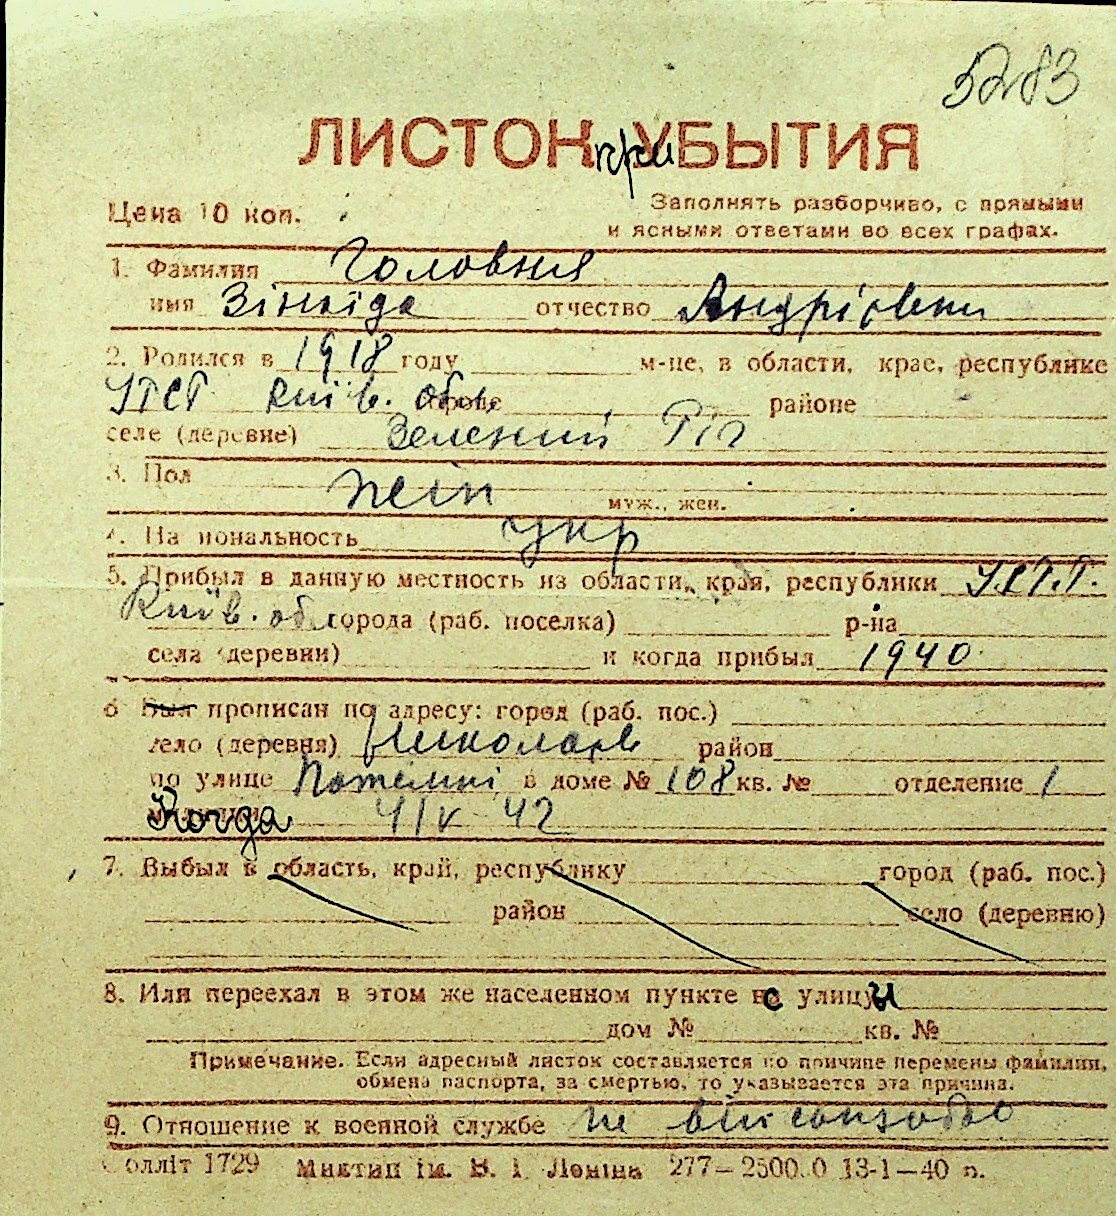 5283
ЛИСТОК приУБЫТИЯ
Цена 10 коп.
Заполнять разборчиво, с прямыми
и ясными ответами во всех графах.
1. Фамилия Головня
имя Зінаїда отчество Андріївни
2. Родился в 1918 году м-це, в области, крае, республике
УРСР Київ. обл. городе районе
селе (деревне) Зелений Ріг
3. Пол
муж., жен.
4. Национальность укр
5. Прибыл в данную местность из области, края, республики У.С.Р.Р.
Київ. обл. города (раб. поселка) р-на
села (деревни) и когда прибыл 1940
6 Был прописан по адресу: город (раб. пос.)
село (деревня) Николаєв район
по улице в доме № 108 кв. № отделение 1
милиции Когда 4/V 42
7. Выбыл в область, край, республику город (раб. пос.)
район село (деревню)
8. Или переехал в этом же населенном пункте с улицы
дом № кв. №
Примечание. Если адресный листок составляется по причине перемены фамилии,
обмена паспорта, за смертью, то указывается эта причина.
9. Отношение к военной службе не
Солліт 1729 Миктип ім. В. І. Леніна 277—2500.0 13-1—40 п.